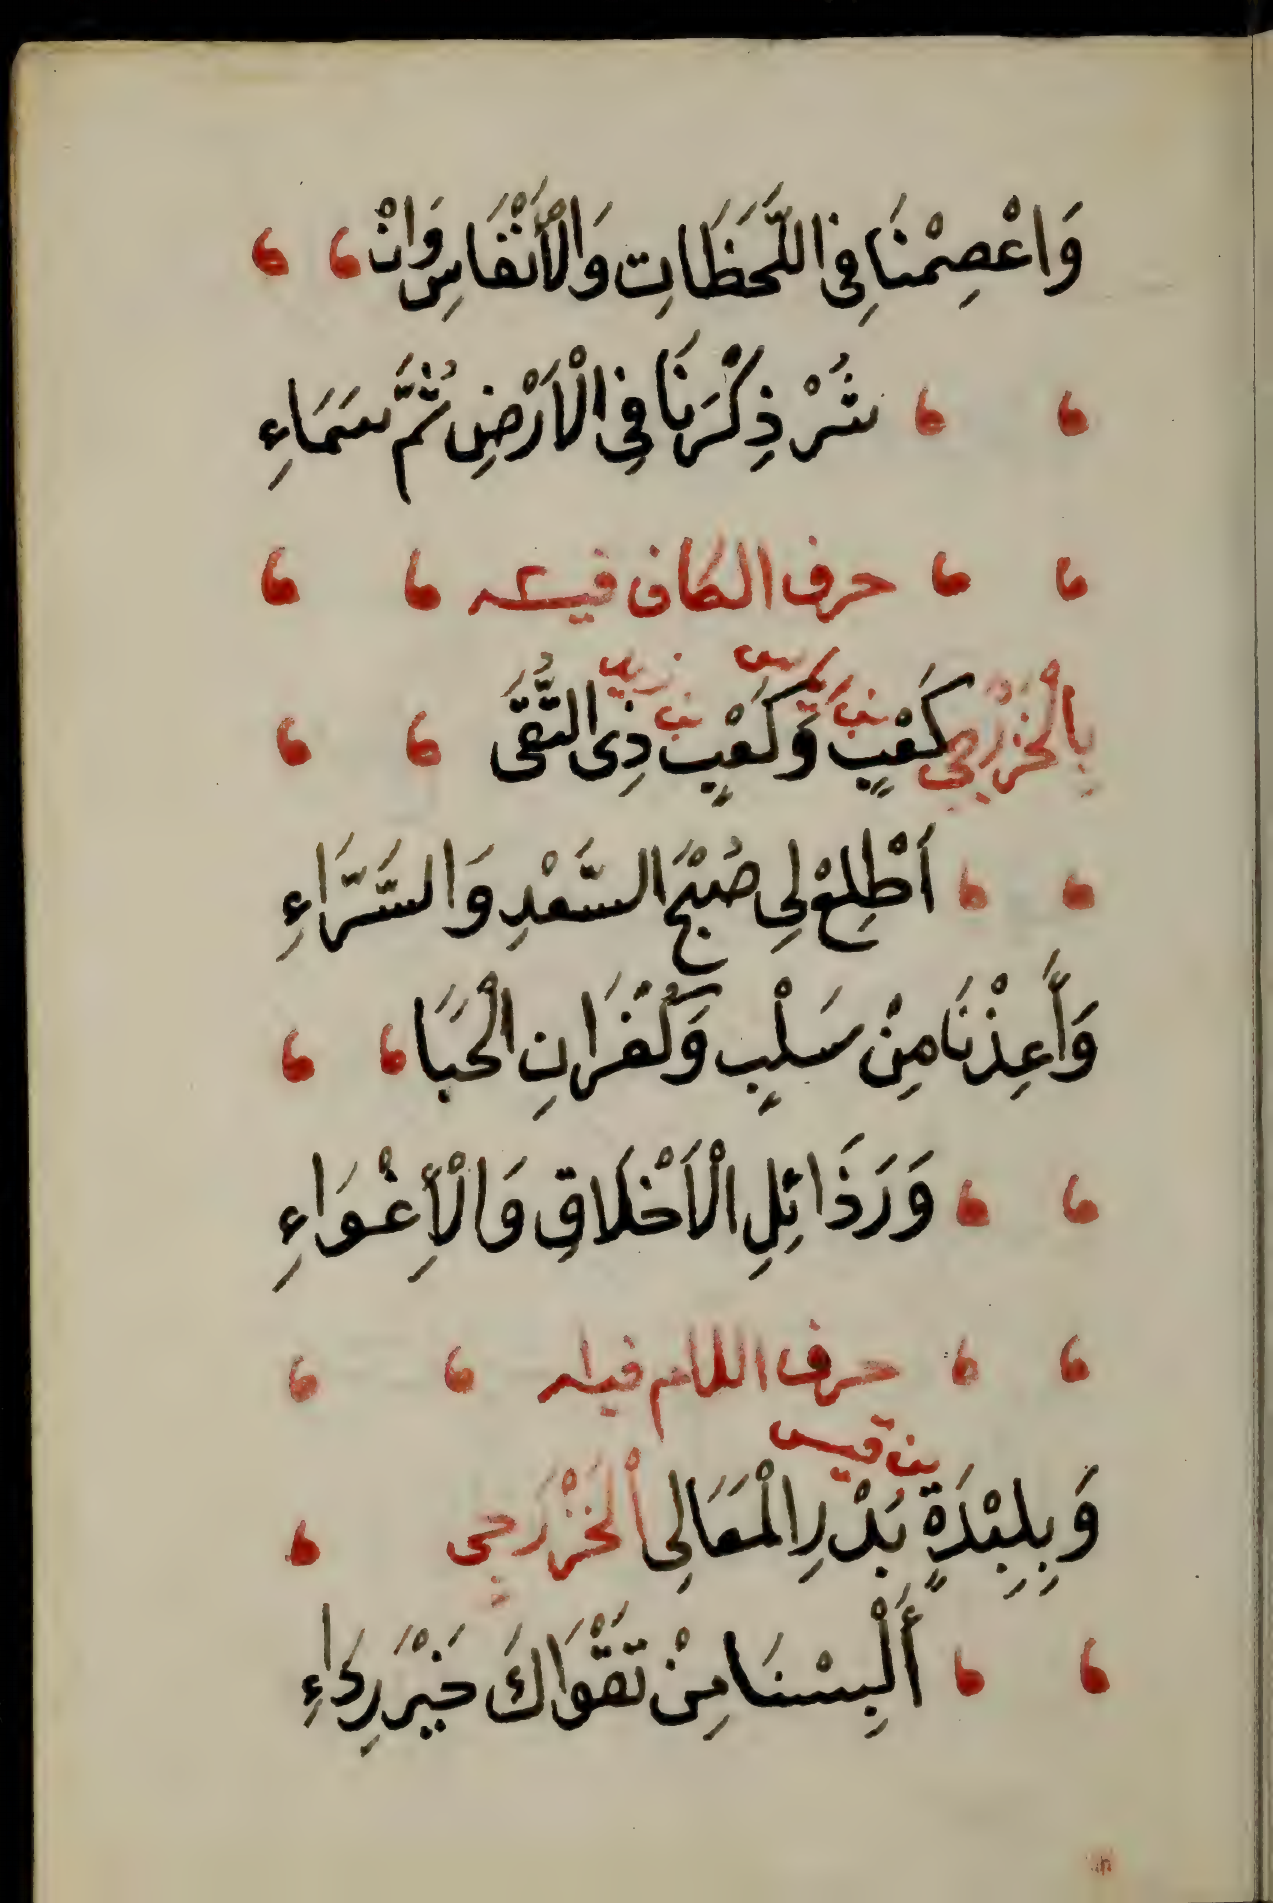 وَاعْصِمْنَا فِى اللَّحَظَاتِ وَالْأَنْفَاسِ وَانْ
شُرْ ذِكْرَنَا فِى الْاَرْضِ ثُمَّ سَمَاءِ
حرف الكاف فيه
بِالْخَزْرَجِى كَعْبٍ وَكَعْبٍ ذِى التُّقَى
اَطْلِعْ لِى صُبْحَ السَّعْدِ وَالسَّرَّاءِ
وَأَعِذْنَا مِنْ سَلْبٍ وَكُفْرَانِ الْحَبَا
وَرَذَائِلِ الْاَخْلَاقِ وَالْأِغْوَاءِ
حرف اللام فيه
بن قيس
وَبِلِبْدَةٍ بَدْرِ الْمَعَالِى اَلْخَزْرَجِى
أَلْبِسْنَا مِنْ تَقْوَاكَ خَيْرَ رِدَاءِ